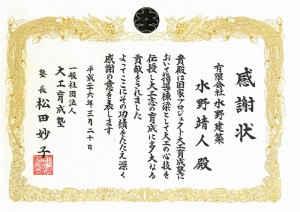 感謝状
有限会社水野建築
水野靖人殿
貴殿は国家プロジェクト大工育成塾に
おいて指導棟梁として大工の心技を
伝授し大工志の育成に多大なる
貢献をされました
よってここにその功績をたたえ深く
感謝の意を表します
平成二六年三月二十日
一般社団法人
大工育成塾
塾長 松田妙子